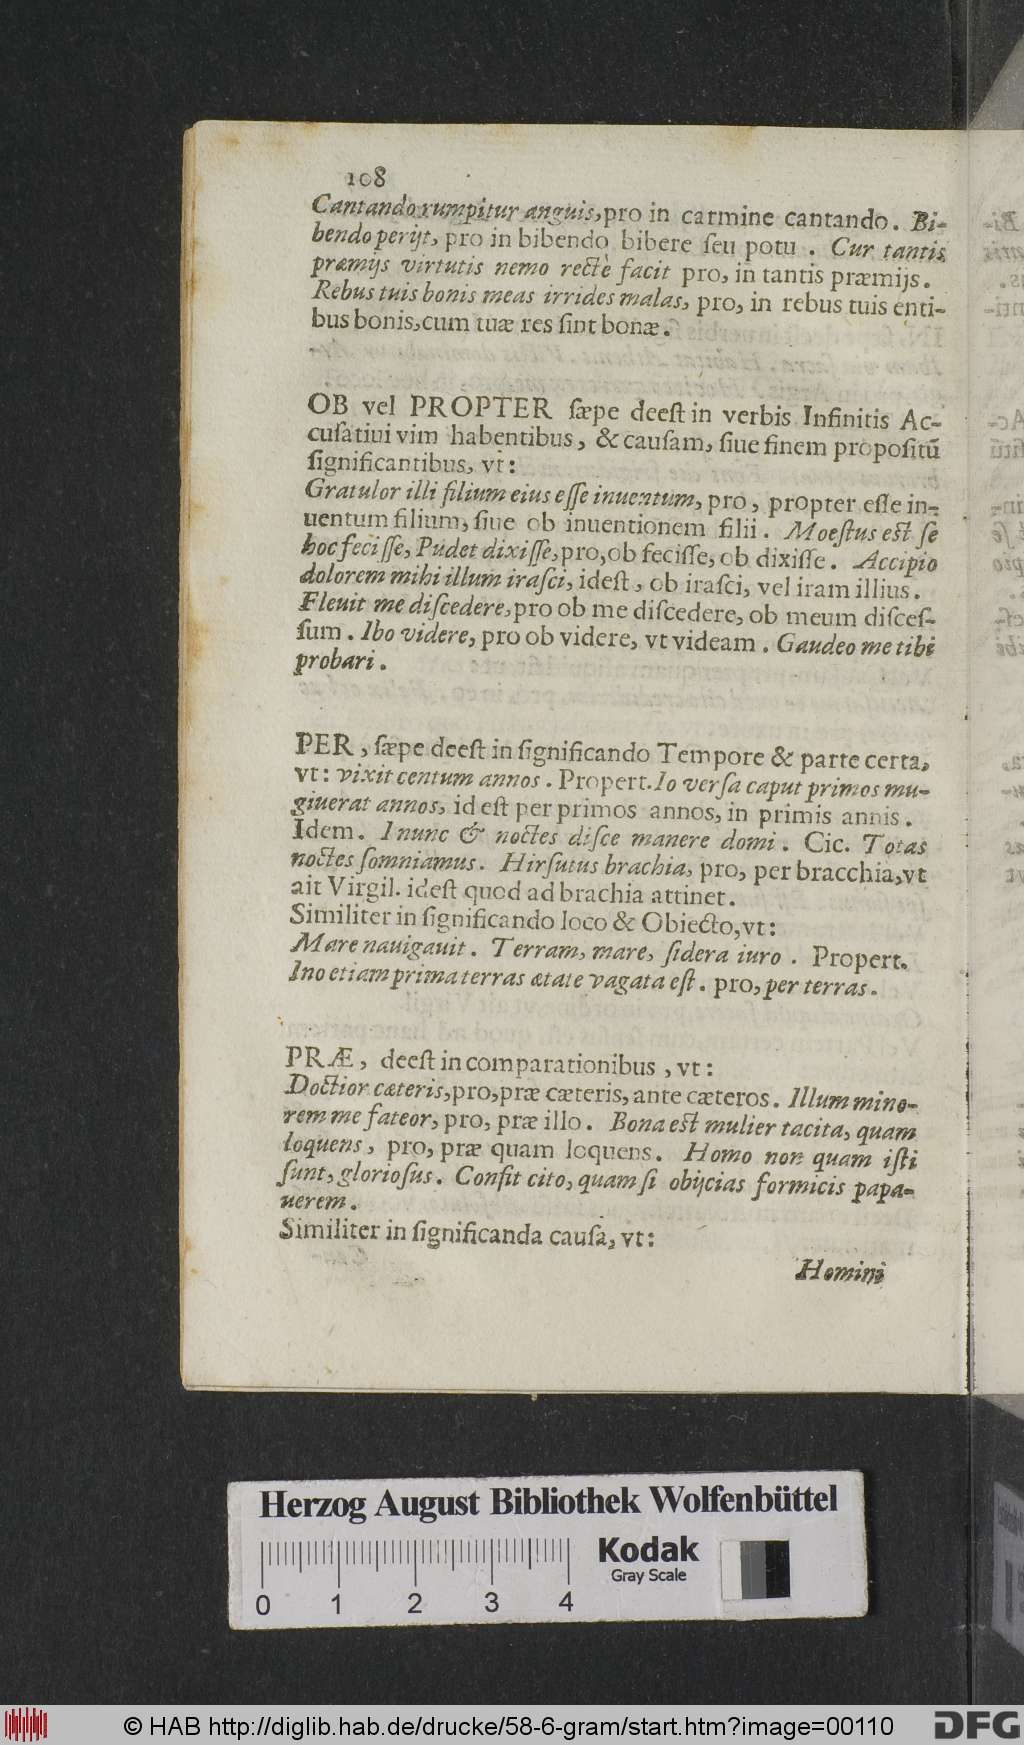 108
Cantando rumpitur anguis, pro in carmine cantando. Bi-
bendo perijt, pro in bibendo bibere ſeu potu. Cur tantis
præmijs virtutis nemo rectè facit pro, in tantis præmijs.
Rebus tuis bonis meas irrides malas, pro, in rebus tuis enti-
bus bonis, cum tuæ res ſint bonæ.
OB vel PROPTER ſæpe deeſt in verbis Infinitis Ac-
cuſatiui vim habentibus, & cauſam, ſiue finem propoſitū
ſignificantibus, vt:
Gratulor illi filium eius eſſe inuentum, pro, propter eſſe in-
uentum filium, ſiue ob inuentionem filii. Moeſtus eſt ſe
hoc feciſſe, Pudet dixiſſe, pro, ob feciſſe, ob dixiſſe. Accipio
dolorem mihi illum iraſci, ideſt, ob iraſci, vel iram illius.
Fleuit me diſcedere, pro ob me diſcedere, ob meum diſceſ-
ſum. Ibo videre, pro ob videre, vt videam. Gaudeo me tibi
probari.
PER, ſæpe deeſt in ſignificando Tempore & parte certa,
vt: vixit centum annos. Propert. Io verſa caput primos mu-
giuerat annos, id eſt per primos annos, in primis annis.
Idem. I nunc & noctes diſce manere domi. Cic. Totas
noctes ſomniamus. Hirſutus brachia, pro, per bracchia, vt
ait Virgil. ideſt quod ad brachia attinet.
Similiter in ſignificando loco & Obiecto, vt:
Mare nauigauit. Terram, mare, ſidera iuro. Propert.
Ino etiam prima terras ætate vagata eſt. pro, per terras.
PRÆ, deeſt in comparationibus, vt:
Doctior cæteris, pro, præ cæteris, ante cæteros. Illum mino-
rem me fateor, pro, præ illo. Bona eſt mulier tacita, quam
loquens, pro, præ quam loquens. Homo non quam iſti
ſunt, glorioſus. Confit cito, quam ſi obijcias formicis papa-
uerem.
Similiter in ſignificanda cauſa, vt:
Homini
Herzog August Bibliothek Wolfenbüttel
Kodak
Gray Scale
0 1 2 3 4
© HAB http://diglib.hab.de/drucke/58-6-gram/start.htm?image=00110
DFG